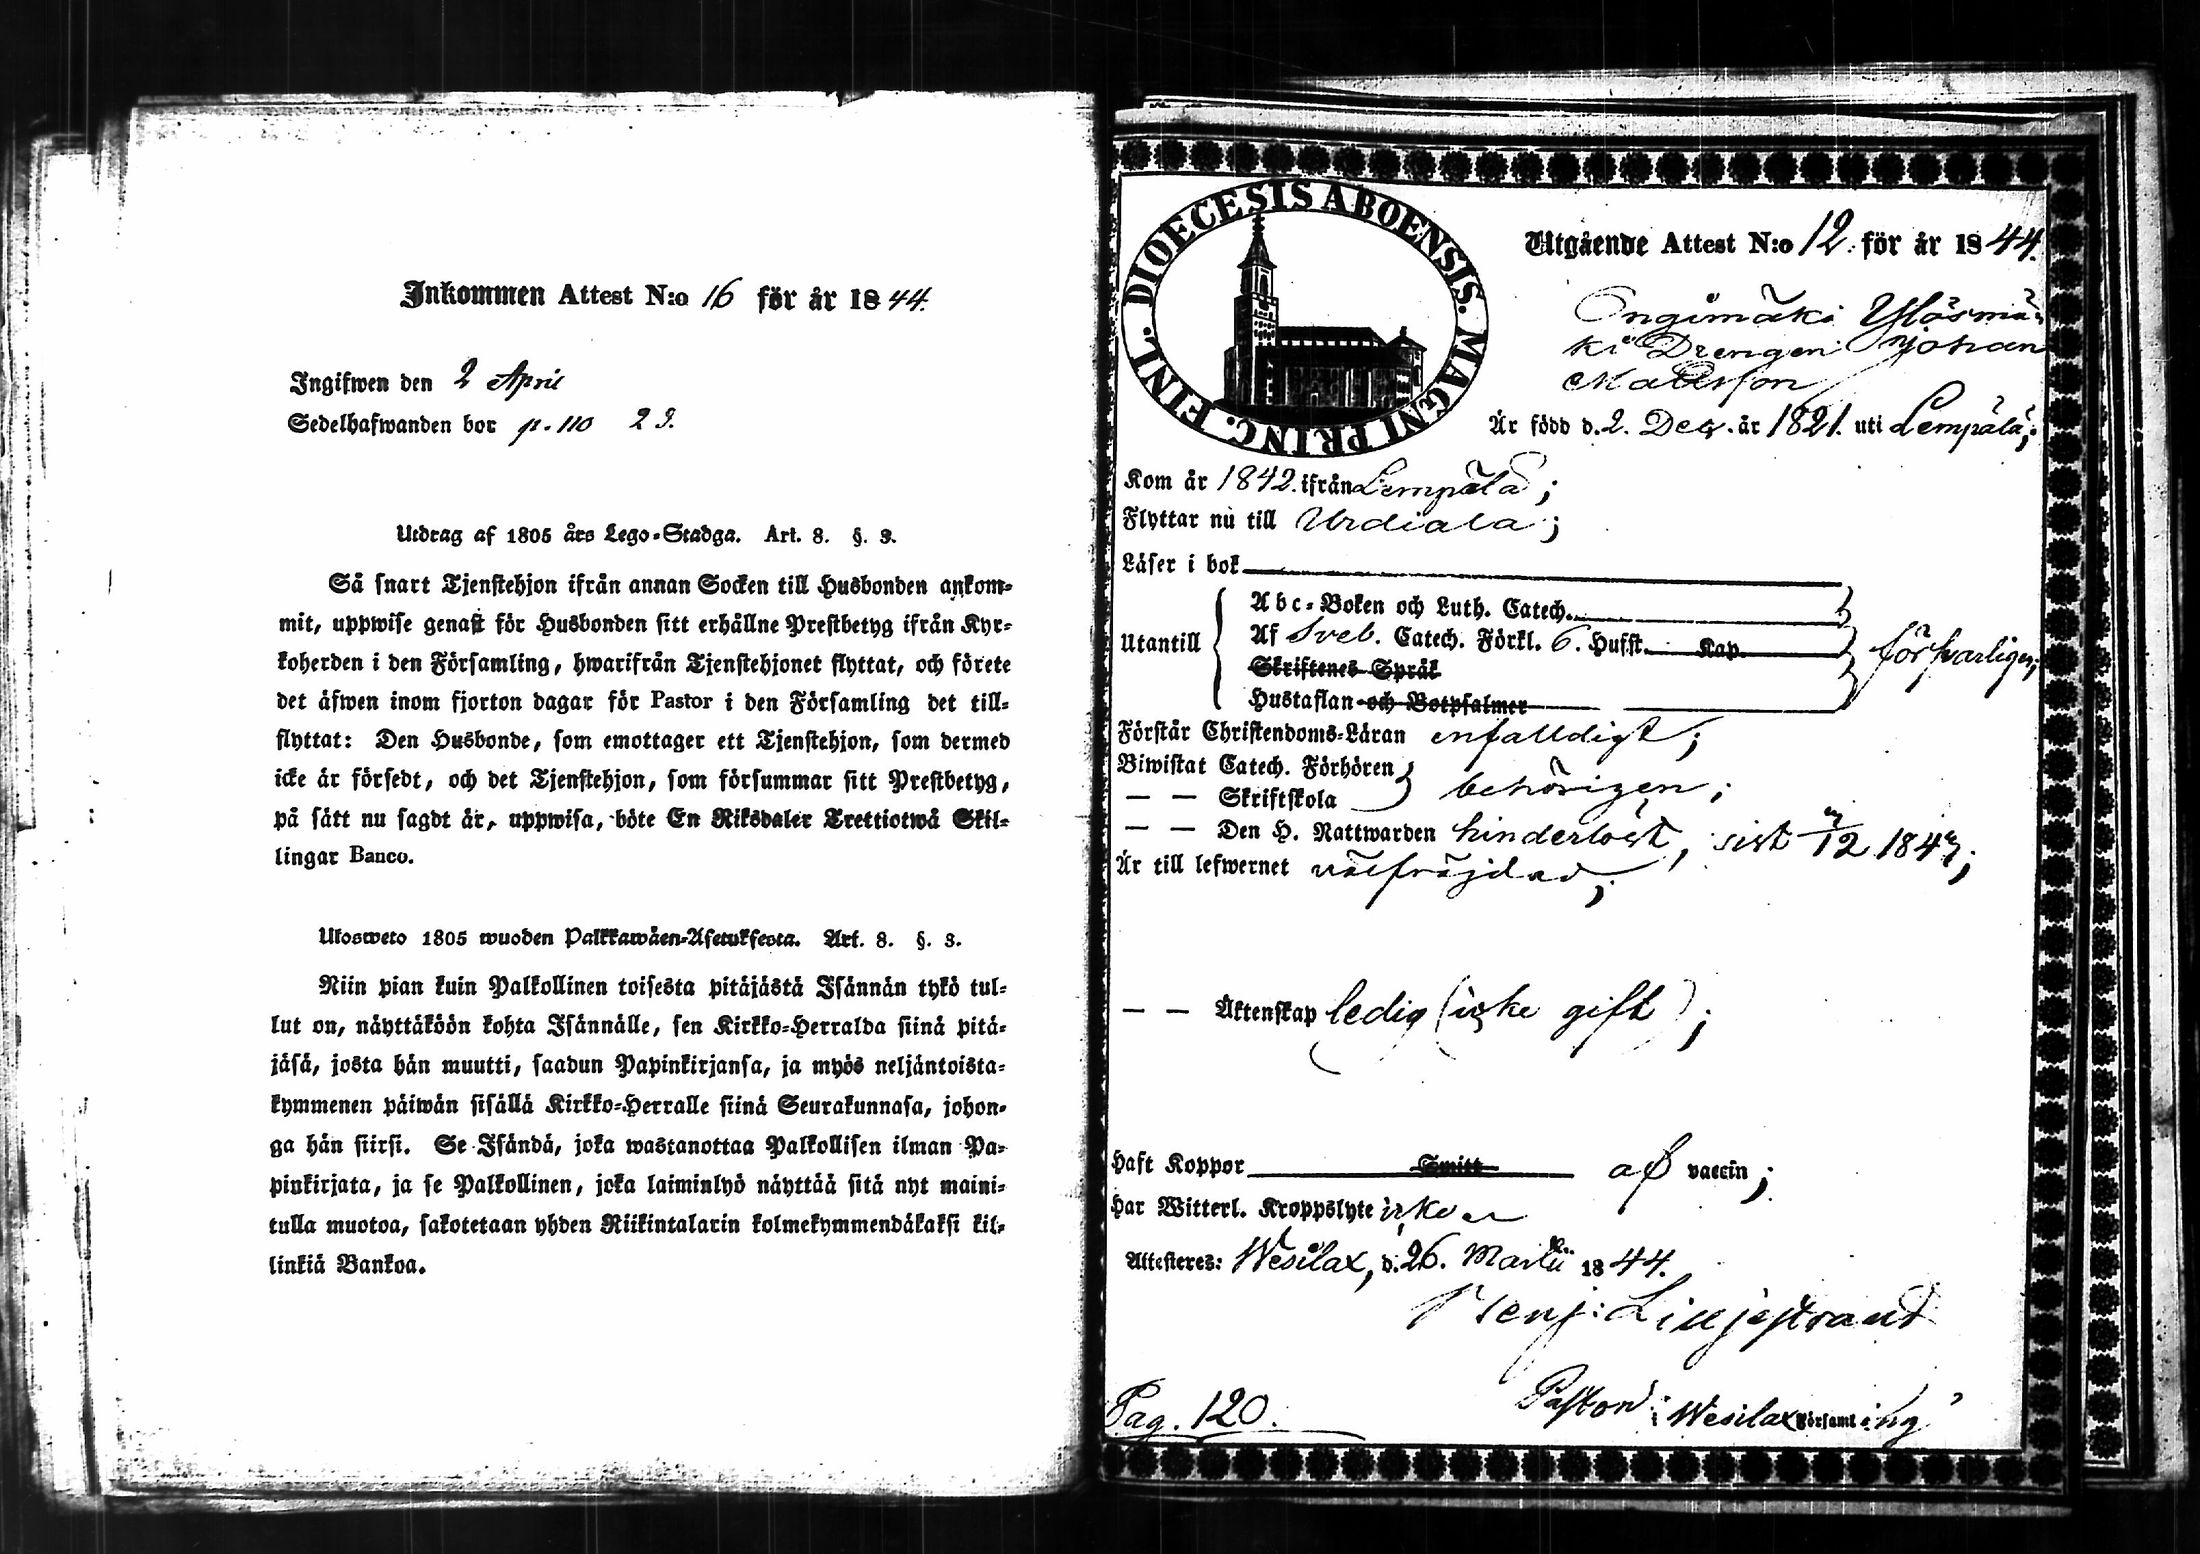 Inkommen Attest N:o 16 för år 1844.
Ingifwen den 2 April
Sedelhafwanden bor p. 110 23.
Utdrag af 1805 års Lego-Stadga. Art. 8. §. 3.
Så snart Tjenstehjon ifrån annan Socken till Husbonden ankom-
mit, uppwise genast för Husbonden sitt erhållne Prestbetyg ifrån Kyr-
koherden i den Församling, hwarifrån Tjenstehjonet flyttat, och förete
det äfwen inom fjorton dagar för Pastor i den Församling det till-
flyttat: Den Husbonde, som emottager ett Tjenstehjon, som dermed
icke är försedt, och det Tjenstehjon, som försummar sitt Prestbetyg,
på sätt nu sagdt är, uppwisa, böte En Riksdaler Trettiotwå Skil-
lingar Banco.
Ulosweto 1805 wuoden Palkkawäen-Asetuksesta. Art. 8. §. 3.
Niin pian kuin Palkollinen toisesta pitäjästä Isännän tykö tul-
lut on, näyttäköön kohta Isännälle, sen Kirkko-Herralda siinä pitä-
jäsä, josta hän muutti, saadun Papinkirjansa, ja myös neljäntoista-
kymmenen päiwän sisällä Kirkko-Herralle siinä Seurakunnasa, johon-
ga hän siirsi. Se Isändä, joka wastanottaa Palkollisen ilman Pa-
pinkirjata, ja se Palkollinen, joka laiminlyö näyttää sitä nyt maini-
tulla muotoa, sakotetaan yhden Riikintalarin kolmekymmendäkaksi kil-
linkiä Bankoa.
FINL. DIOECESIS ABOENSIS. MAGNI PRINC.
Utgående Attest N:o 12. för år 1844.
Ongimäki Ylösmä-
ki Drengen Johan
Mattsson
Är född d. 2. Dec. år 1821. uti Lempälä;
Kom år 1842. ifrån Lempälä;
Flyttar nu till Urdiala;
Läser i bok
Abc-Boken och Luth. Catech.
Utantill Af Sveb. Catech. Förkl. 6. Hufst. Kap. försvarligen;
Skriftenes Språk
Hustaflan och Botpsalmer
Förstår Christendoms-Läran enfalldigt;
Biwistat Catech. Förhören
— — Skriftskola behörigen;
— — Den H. Nattwarden hinderlöst, sist /12 1843;
Är till lefwernet välfräjdad;
— — Äktenskap ledig (icke gift);
Haft Koppor Smitt af vaccin;
Har Witterl. Kroppslyte icke
Attesteres: Wesilax, d. 26. Martii 1844.
Benj: Lilljestrand
Pastor i Wesilax Församling
Pag. 120.